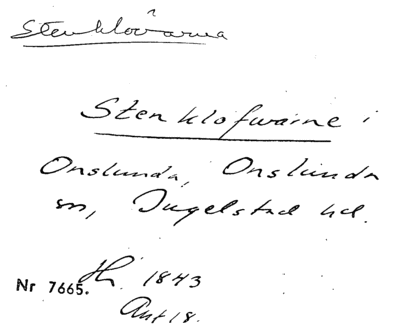 Stenklovarna
Stenklofwarne i
Onslunda, Onslunda
sn, Ingelstad hd.
Hi. 1843
Nr 7665.
Ant 18.